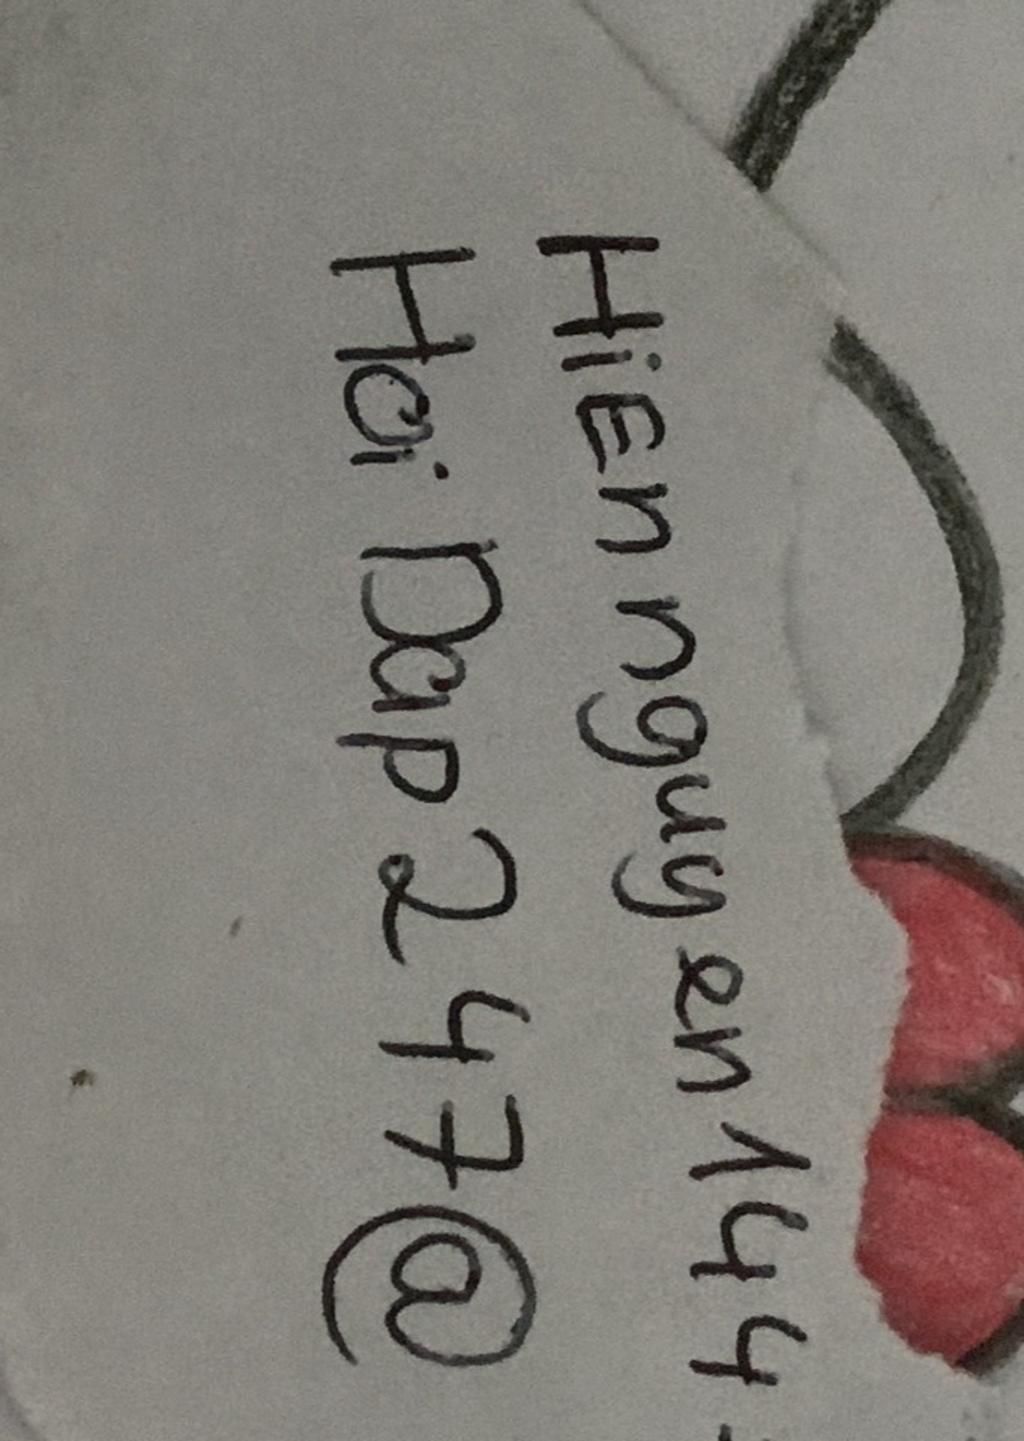 HiEn nguyen 144-
Hoi Dap 247@